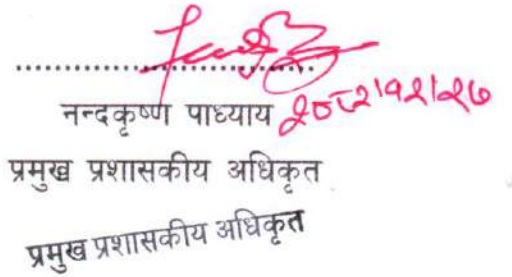 ....................................
नन्दकृष्ण पाध्याय २०८२।१२।२७
प्रमुख प्रशासकीय अधिकृत
प्रमुख प्रशासकीय अधिकृत